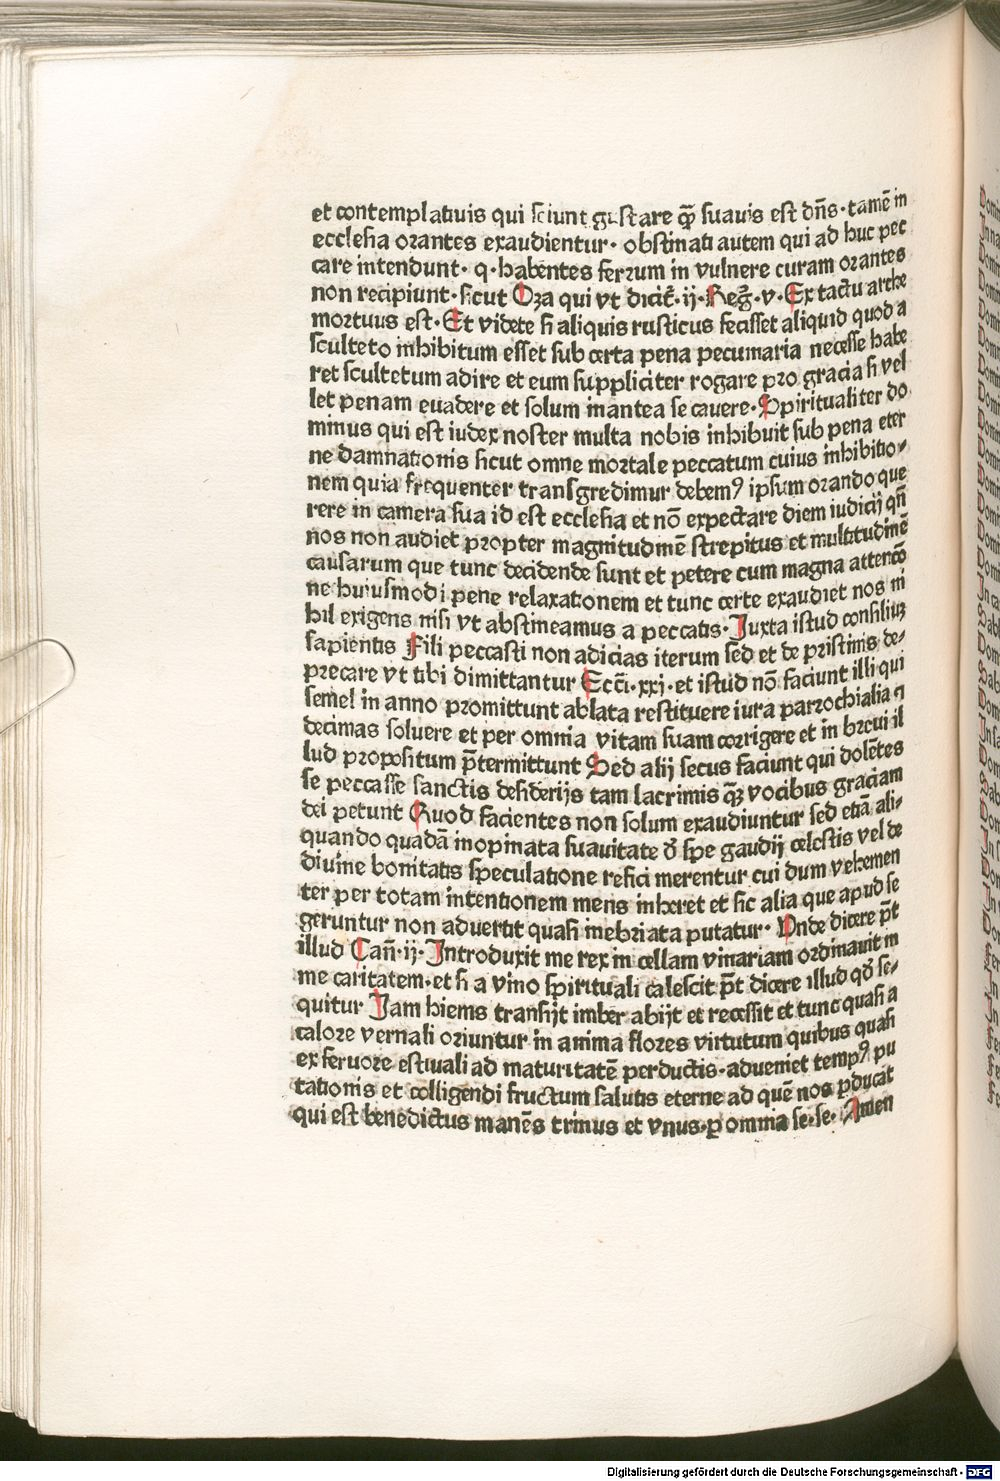 et contemplatiuis qui sciunt gustare qꝫ̄ suauis est dn̄s· tamē in
ecclesia orantes exaudientur· obstinati autem qui ad huc pec
care intendunt· q· habentes ferrum in vulnere curam orantes
non recipiunt· sicut Oza qui vt dicit̄· ij· Reḡ· v· Ex tactu arche
mortuus est· Et videte si aliquis rusticus fecisset aliquid quod a
sculteto inhibitum esset sub certa pena pecuniaria necesse habe
ret scultetum adire et eum suppliciter rogare pro gracia si vel
let penam euadere et solum mantea se cauere· Spiritualiter do
minus qui est iudex noster multa nobis inhibuit sub pena eter
ne damnationis sicut omne mortale peccatum cuius inhibitio⸗
nem quia frequenter transgredimur debemꝰ ipsum orando que
rere in camera sua id est ecclesia et nō expectare diem iudicij qn̄
nos non audiet propter magnitudinē strepitus et multitudinē
causarum que tunc decidende sunt et petere cum magna attencō
ne huiusmodi pene relaxationem et tunc certe exaudiet nos ni
hil exigens nisi vt abstineamus a peccatis· Iuxta istud consiliuꝫ
sapientis Fili peccasti non adicias iterum sed et de pristinis de⸗
precare vt tibi dimittantur Eccī· xxj· et istud nō faciunt illi qui
semel in anno promittunt ablata restituere iura parrochialia ⁊
decimas soluere et per omnia vitam suam corrigere et in breui il
lud propositum p̄termittunt Sed alij secus faciunt qui dolētes
se peccasse sanctis desiderijs tam lacrimis qꝫ̄ vocibus graciam
dei petunt Quod facientes non solum exaudiuntur sed etiā ali⸗
quando quadā inopinata suauitate d̄ spe gaudij celestis vel de
diuine bonitatis speculatione refici merentur cui dum vehemen
ter per totam intentionem mens inheret et sic alia que apud se
geruntur non aduertit quasi inebriata putatur· Vnde dicere p̄t
illud Can̄· ij· Introduxit me rex in cellam vinariam ordinauit in
me caritatem· et si a vino spirituali calescit p̄t dicere illud qd̄ se⸗
quitur Iam hiems transijt imber abijt et recessit et tunc quasi a
calore vernali oriuntur in anima flores virtutum quibus quasi
ex feruore estiuali ad maturitatē perductis· adueniet tempꝰ pu
tationis et colligendi fructum salutis eterne ad quē nos ꝓducat
qui est benedictus manēs trinus et vnus· ꝑ omnia se· se· Amen
Digitalisierung gefördert durch die Deutsche Forschungsgemeinschaft - DFG